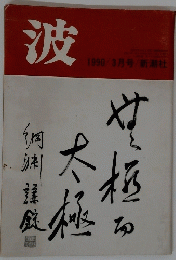 波
1986/3月号 新潮社
無極而
太極
綱淵謙錠